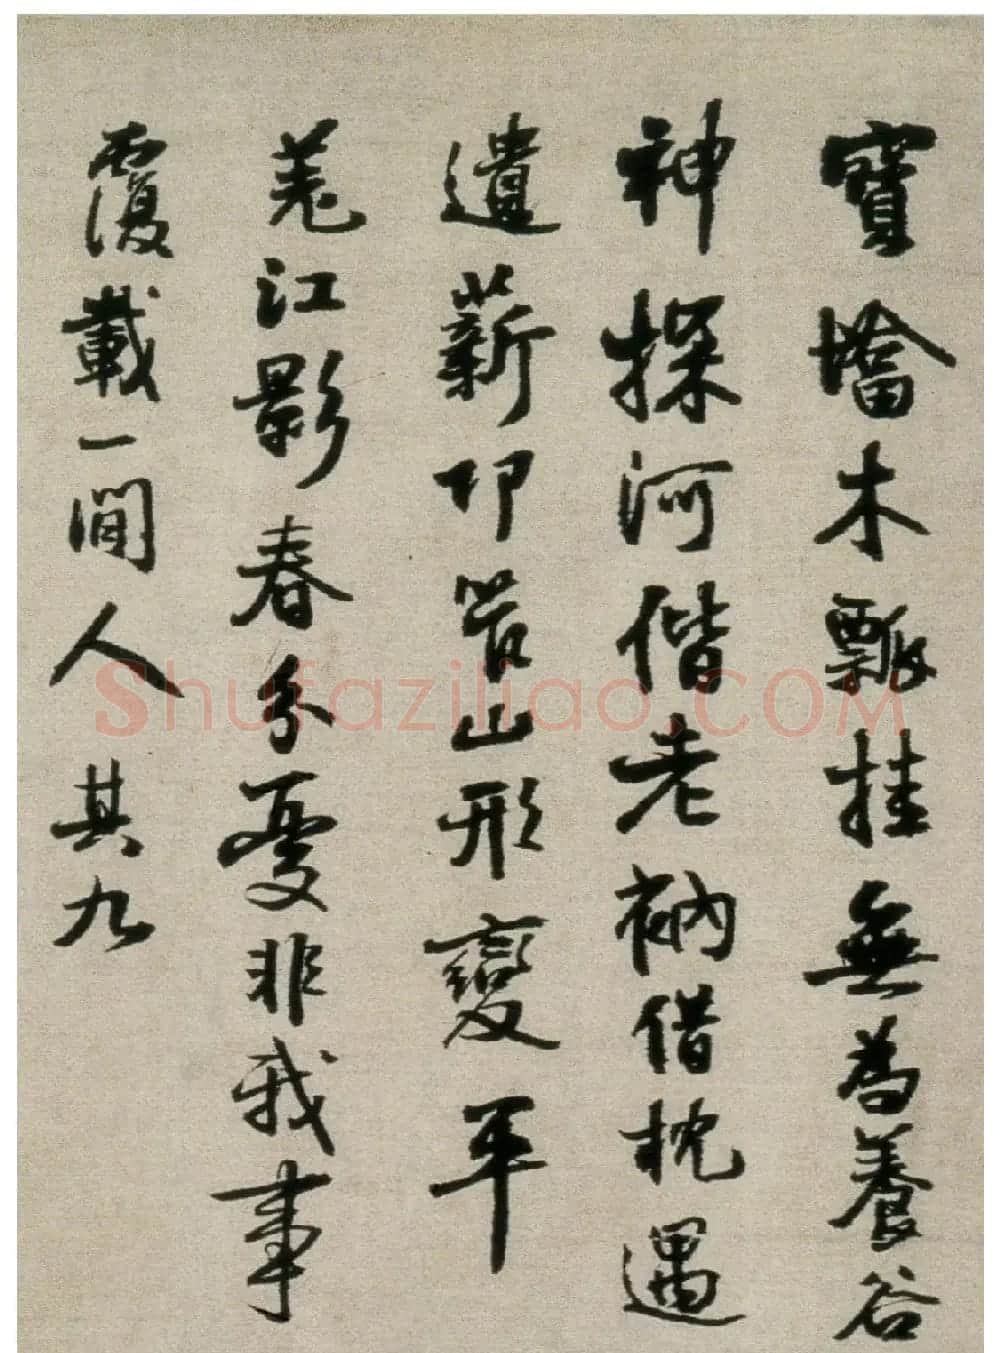 寶墖木瓢挂無為養谷
神探河偕老衲借枕遇
遺薪卭山形變平
羌江影春分憂非我事
覆載一間人 其九
Shufaziliao.COM